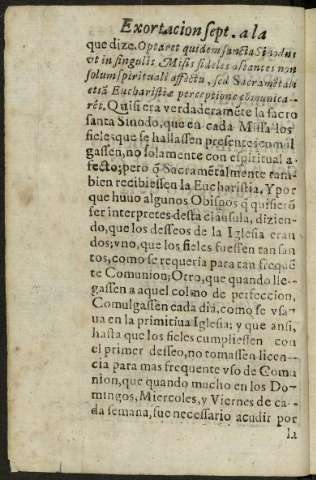 Exortacion sept. a la
que dize. Optaret quidem sancta Sinodus
vt in singulis Missis fideles astantes non
solum spirituali affectu, sed Sacramẽtali
etiã Eucharistiæ perceptione cõmunica-
rẽt. Quisiera verdaderamẽte la sacro
santa Sinodo, que en cada Missa los
fieles que se hallassen presentes comul
gassen, no solamente con espiritual a-
fecto; pero q̃ Sacramẽtalmente tam-
bien recibiessen la Eucharistia. Y por
que huuo algunos Obispos q̃ quisierõ
ser interpretes desta clausula, dizien-
do, que los desseos de la Iglesia eran
dos; vno, que los fieles fuessen tan san
tos, como se requeria para tan freque
te Comunion; Otro, que quando lle-
gassen a aquel colmo de perfeccion,
Comulgassen cada dia, como se vsa-
ua en la primitiua Iglesia; y que ansi,
hasta que los fieles cumpliessen con
el primer desseo, no tomassen licen-
cia para mas frequente vso de Comu
nion, que quando mucho en los Do-
mingos, Miercoles, y Viernes de ca-
da semana, fue necessario acudir por
la